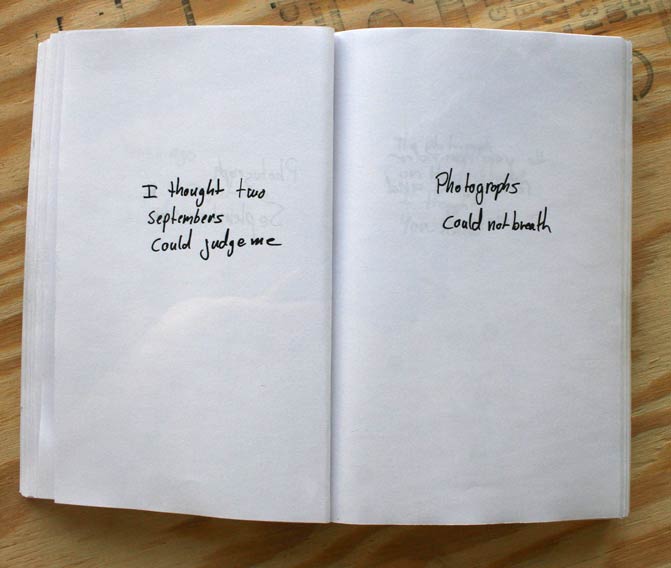 I thought two
Septembers
Could judge me
Photographs
Could not breath